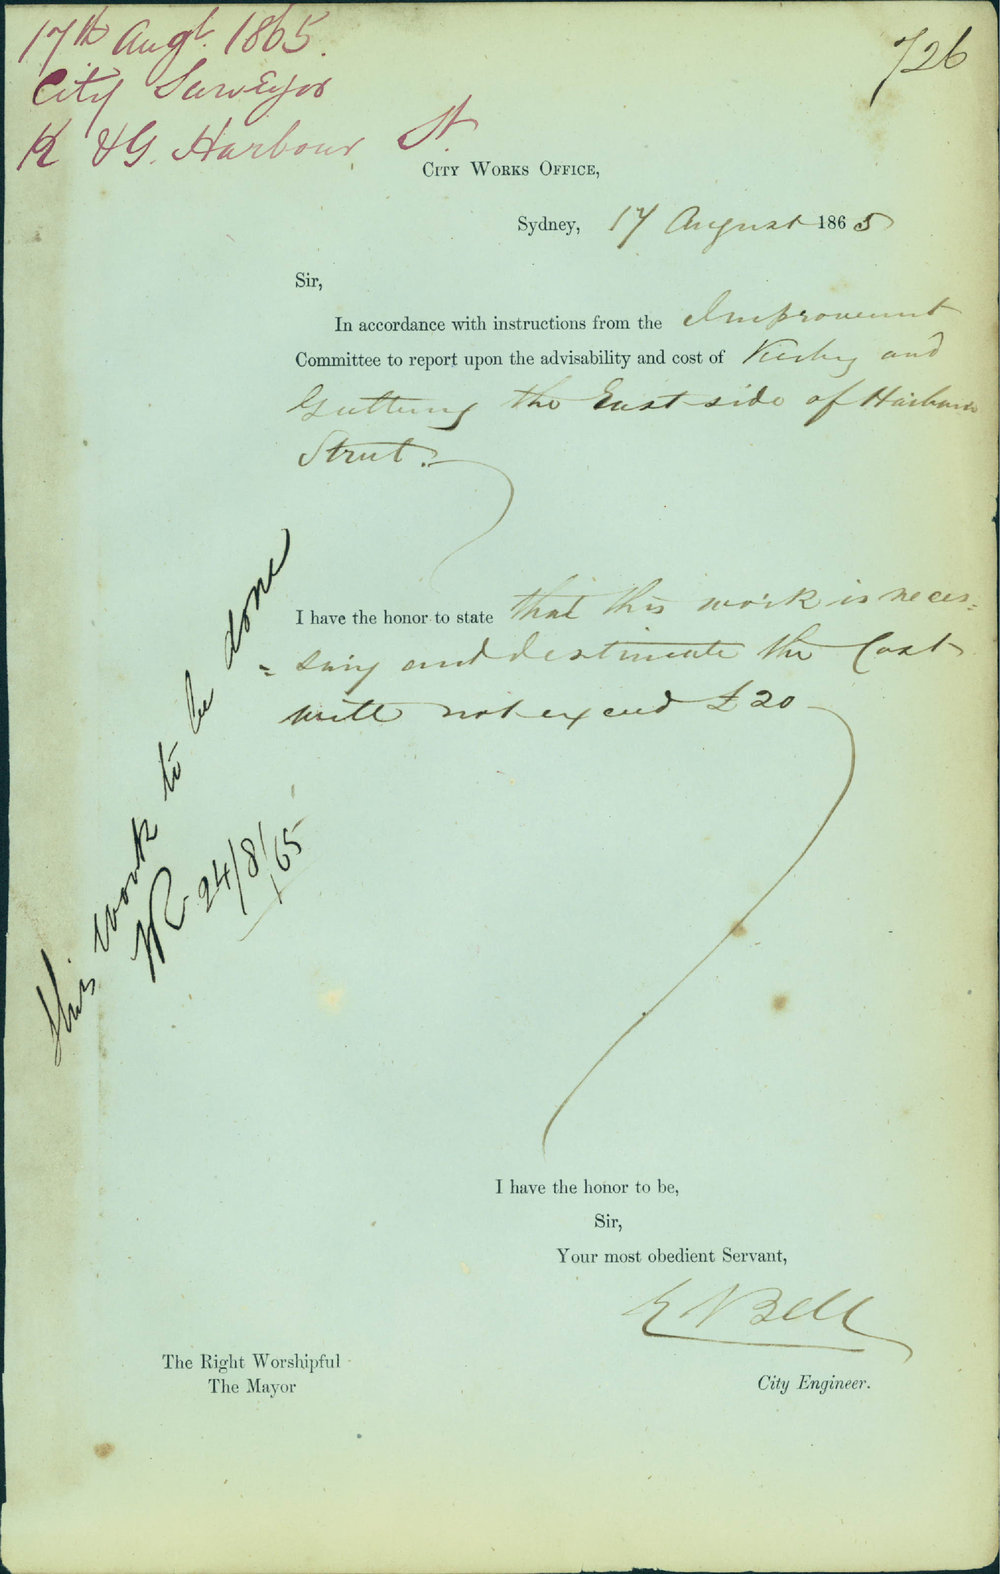 17th Augt. 1865.
City Surveyor
K & G. Harbour St.
726
CITY WORKS OFFICE,
Sydney, 17 August 1865
Sir,
In accordance with instructions from the Improvement
Committee to report upon the advisability and cost of Kerbing and
Guttering the East side of Harbour
Street.
I have the honor to state that this work is neces=
=sary and I estimate the Cost
will not exceed £20
This work to be done
24/8/65
I have the honor to be,
Sir,
Your most obedient Servant,
E Bell
The Right Worshipful
The Mayor
City Engineer.